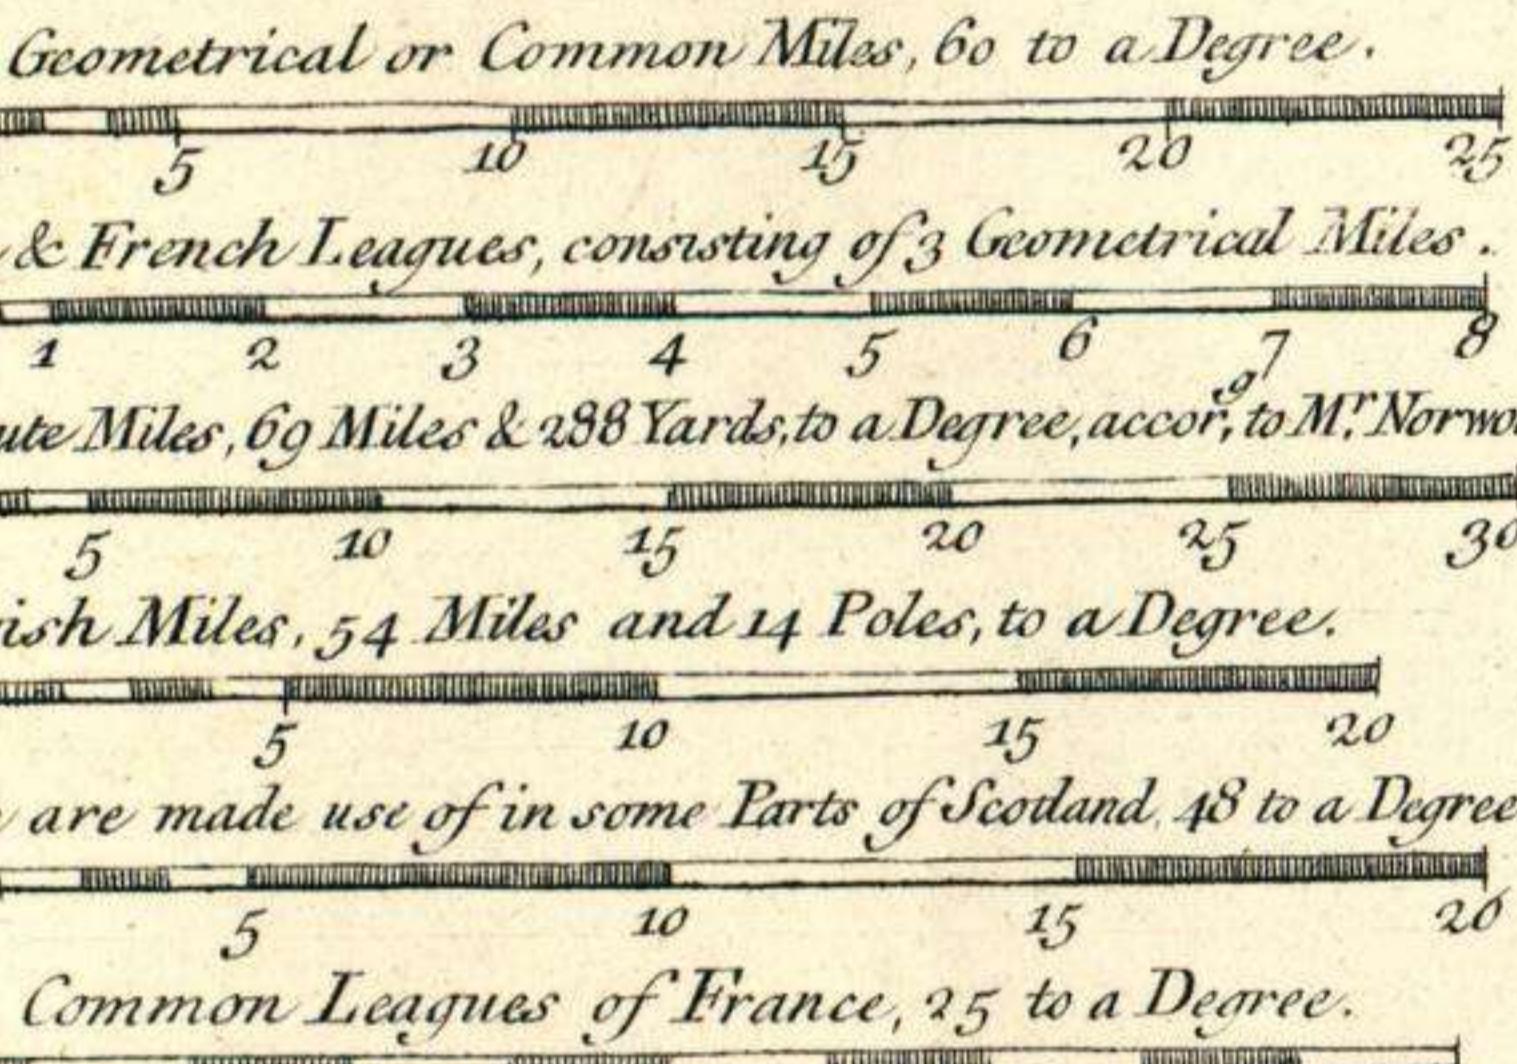 Geometrical or Common Miles, 60 to a Degree.
5 10 15 20 25
& French Leagues, consisting of 3 Geometrical Miles.
1 2 3 4 5 6 7 8
ute Miles, 69 Miles & 288 Yards, to a Degree, accor,g to Mr. Norwo
5 10 15 20 25 30
ish Miles, 54 Miles and 14 Poles, to a Degree.
5 10 15 20
are made use of in some Parts of Scotland, 48 to a Degree
5 10 15 20
Common Leagues of France, 25 to a Degree.